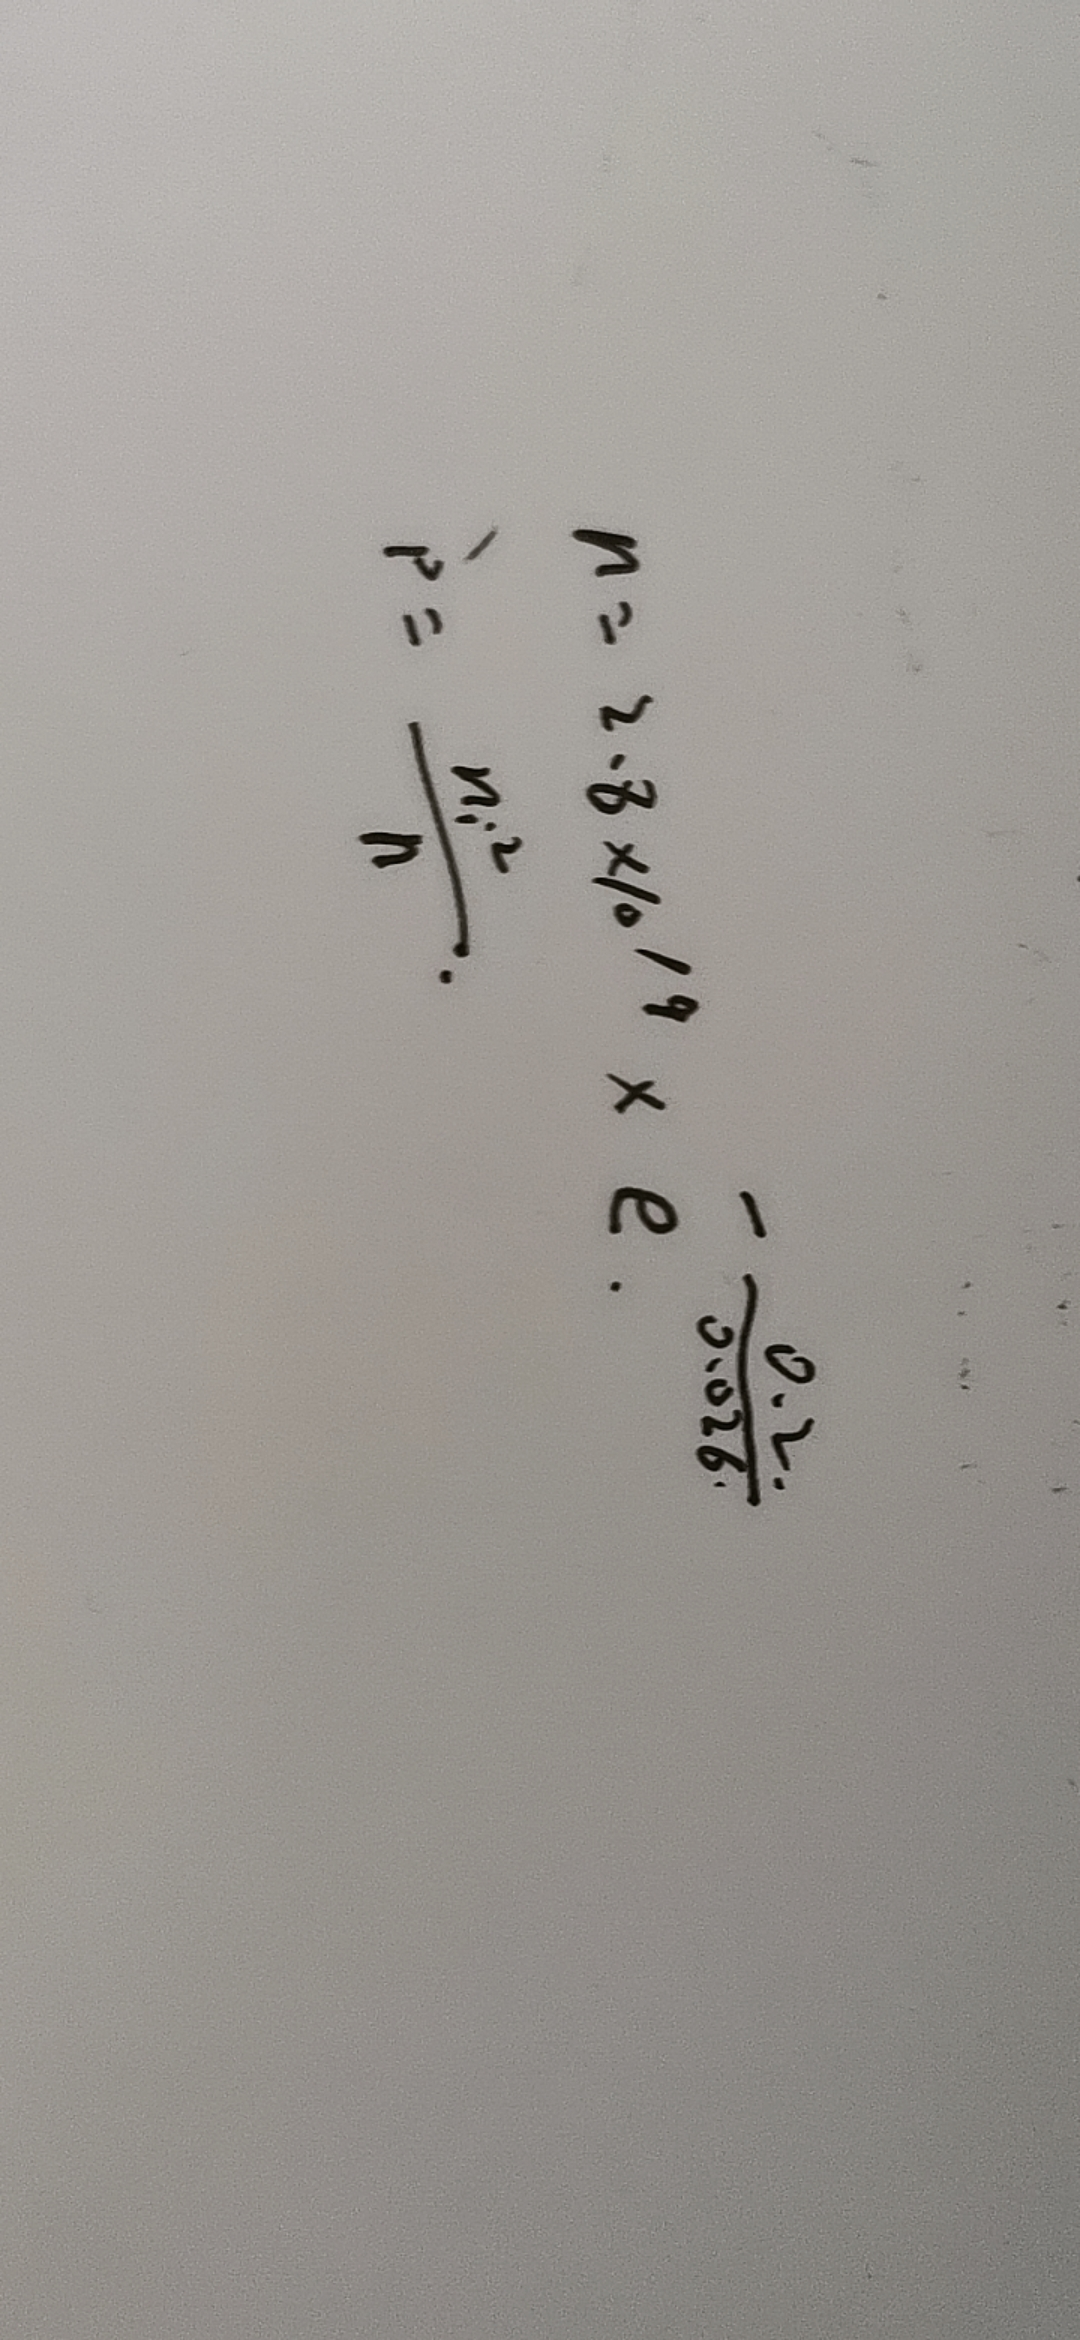 n = 2.8 x 10^19 x e^-0.2/0.026.
p = ni^2/n.